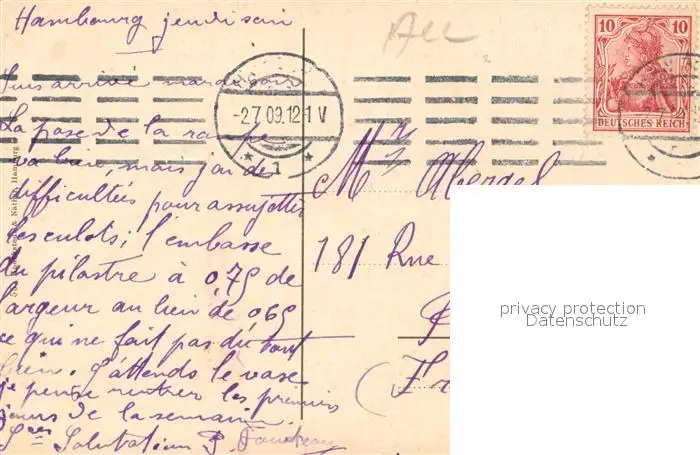 Hambourg jeudi soir
Suis arrivé mardi soir
La pose de la rampe
va bien, mais j'ai de
difficultés pour assujettir
les culots; l'embase
du pilastre a 0,75 de
largeur au lieu de 0,65
ce qui ne fait pas du tout
bien. J'attends le vase
je pense rentrer les premiers
jours de la semaine.
Salutation P.
All
10 10
DEUTSCHES REICH
-2.7.09.12-1 V
* 1 *
Mr
181 Rue
(Fr
privacy protection
Datenschutz